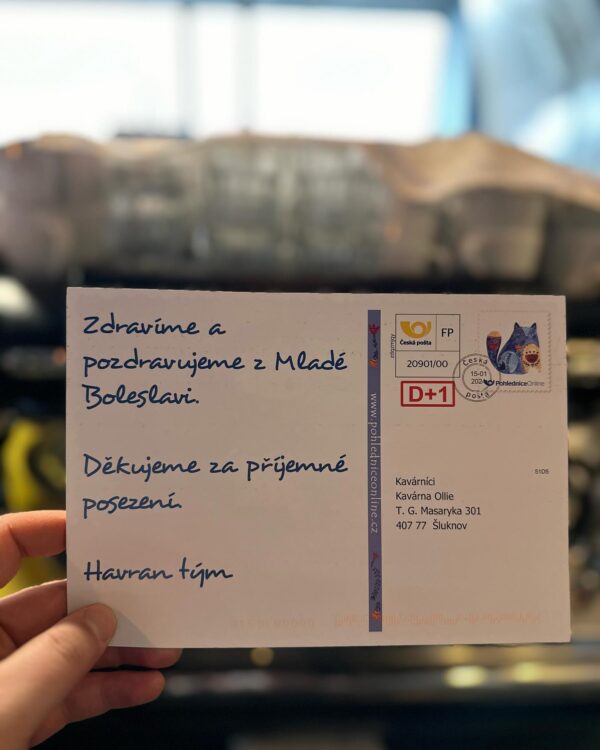 Zdravíme a
pozdravujeme z Mladé
Boleslavi.
Děkujeme za příjemné
posezení.
Havran tým
www.pohledniceonline.cz
Česká pošta
FP
20901/00
D+1
Česká
15-01
2024
pošta
PohledniceOnline
51D5
Kavárníci
Kavárna Ollie
T. G. Masaryka 301
407 77 Šluknov